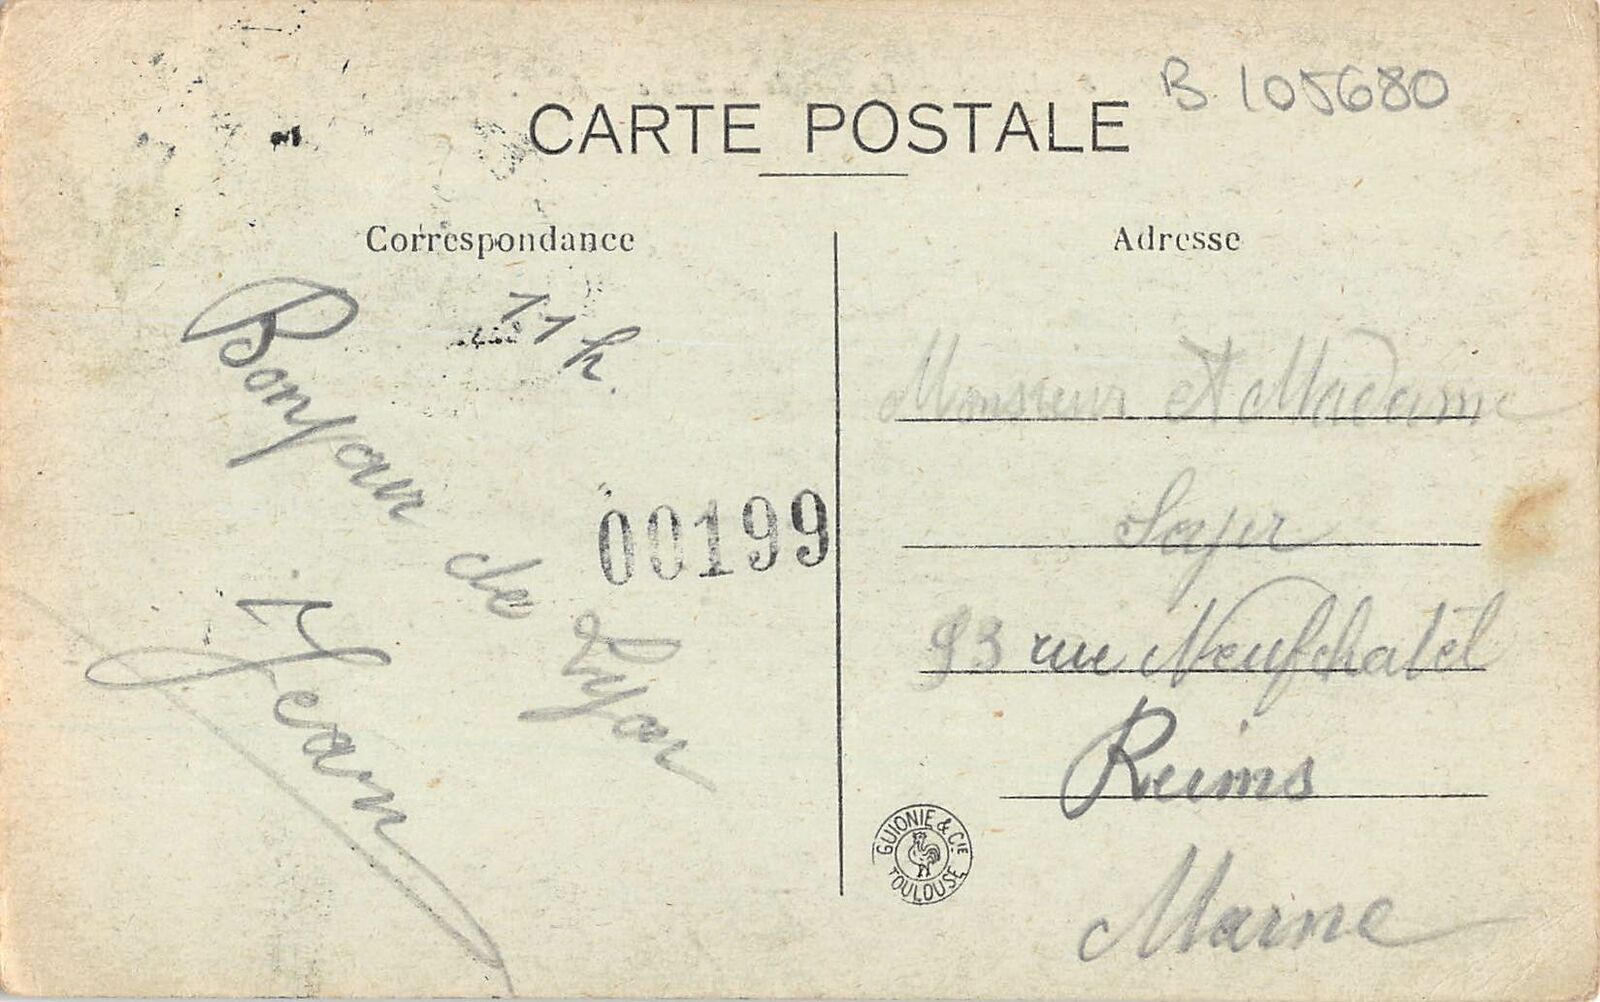 B 105680
CARTE POSTALE
Correspondance
11 h.
Bonjour
de
Lyon
Jean
00199
Adresse
Monsieur et Madame
93 rue Neufchatel
Reims
Marne
GUIONIE & CIE
TOULOUSE